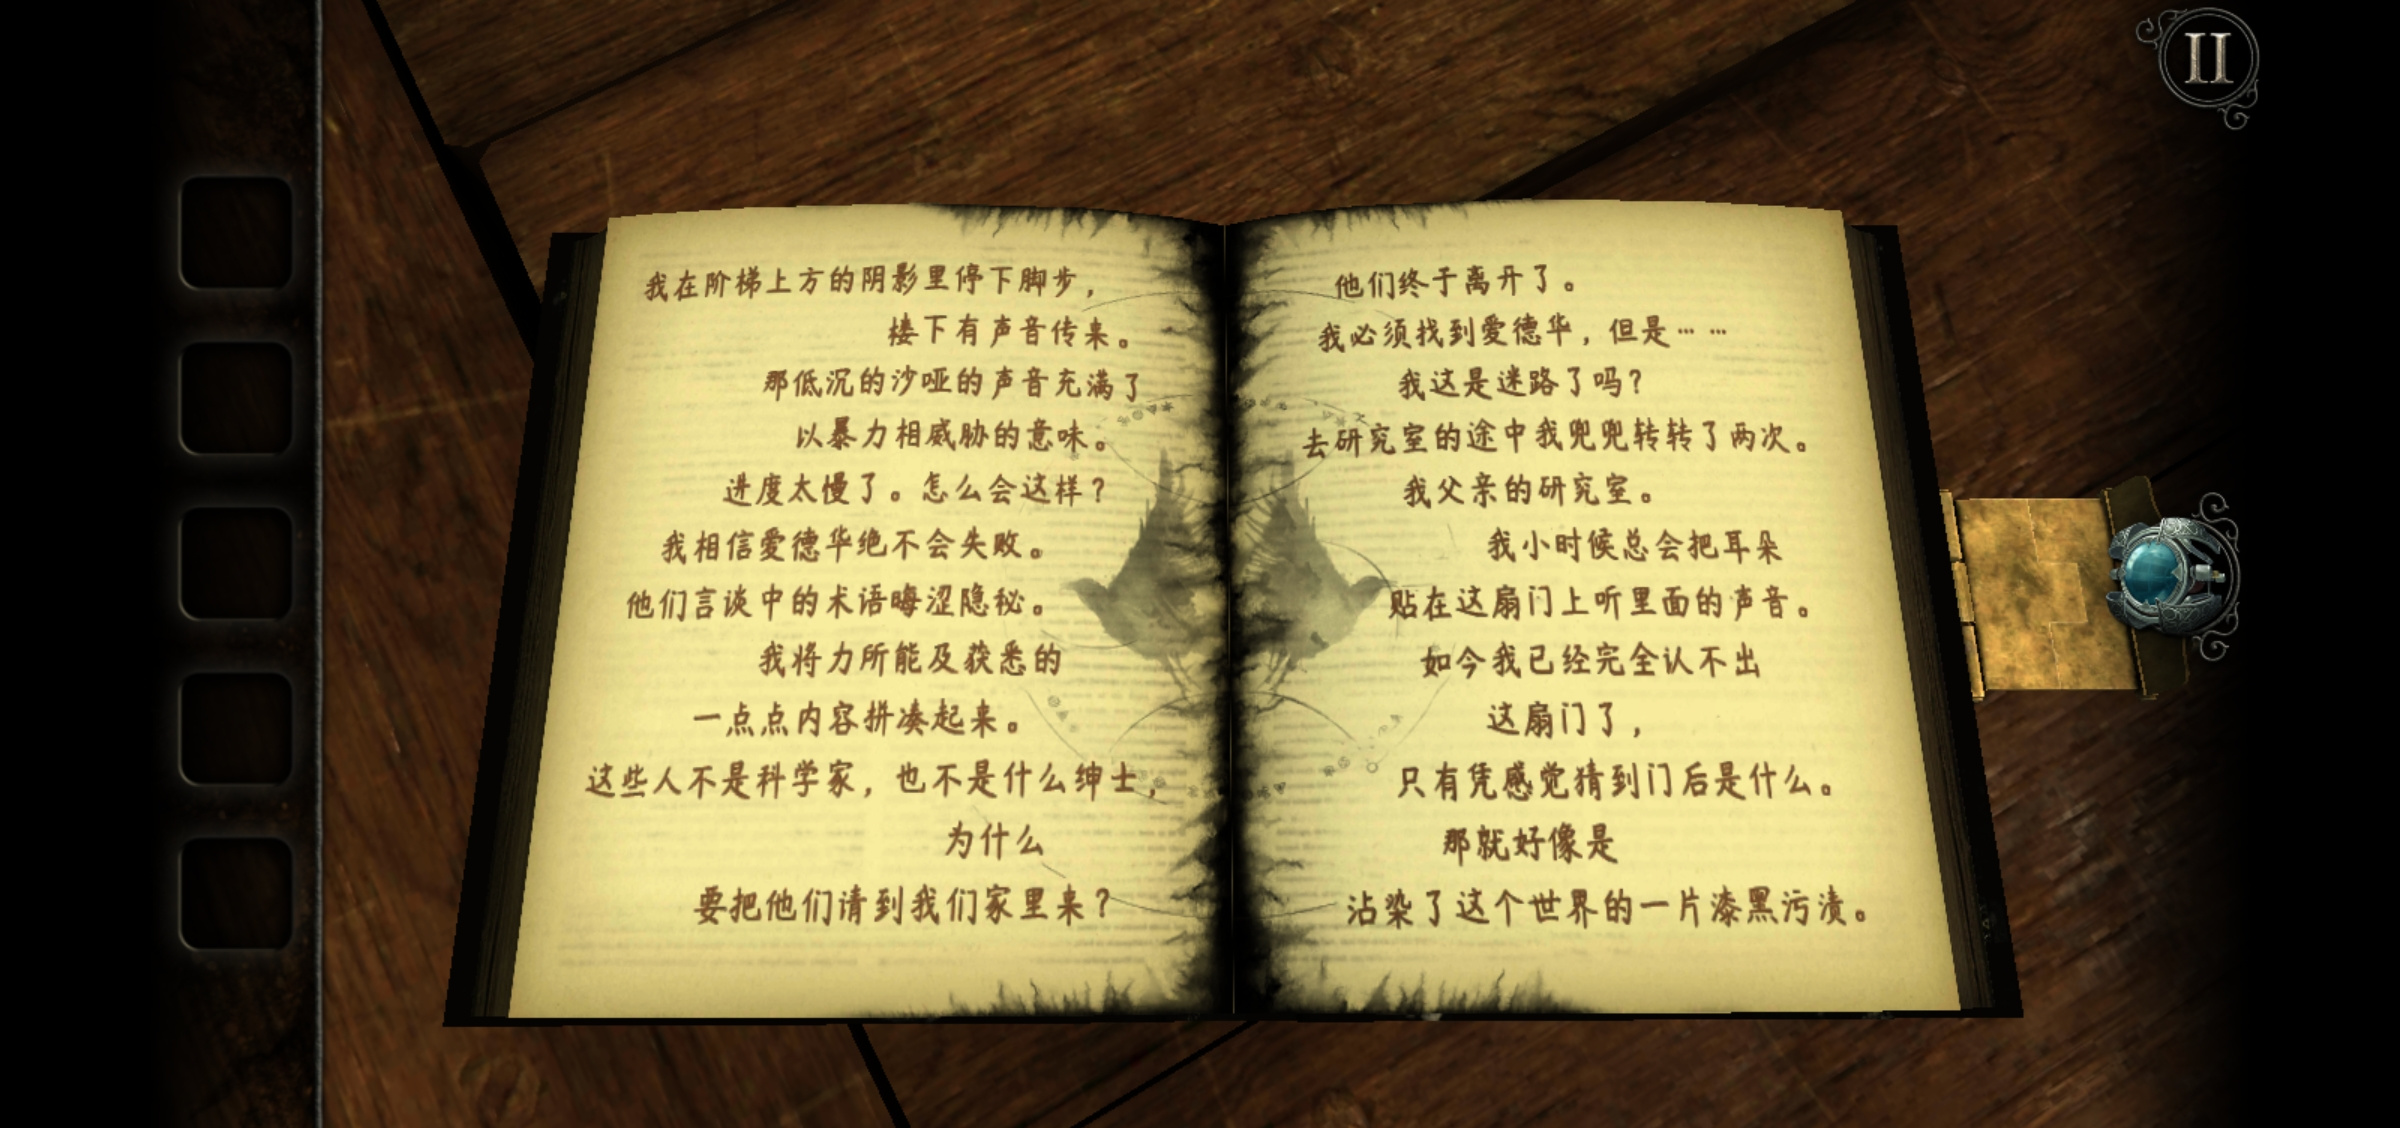 我在阶梯上方的阴影里停下脚步，
楼下有声音传来。
那低沉的沙哑的声音充满了
以暴力相威胁的意味。
进度太慢了。怎么会这样？
我相信爱德华绝不会失败。
他们言谈中的术语晦涩隐秘。
我将力所能及获悉的
一点点内容拼凑起来。
这些人不是科学家，也不是什么绅士，
为什么
要把他们请到我们家里来？
他们终于离开了。
我必须找到爱德华，但是……
我这是迷路了吗？
去研究室的途中我兜兜转转了两次。
我父亲的研究室。
我小时候总会把耳朵
贴在这扇门上听里面的声音。
如今我已经完全认不出
这扇门了，
只有凭感觉猜到门后是什么。
那就好像是
沾染了这个世界的一片漆黑污渍。
II